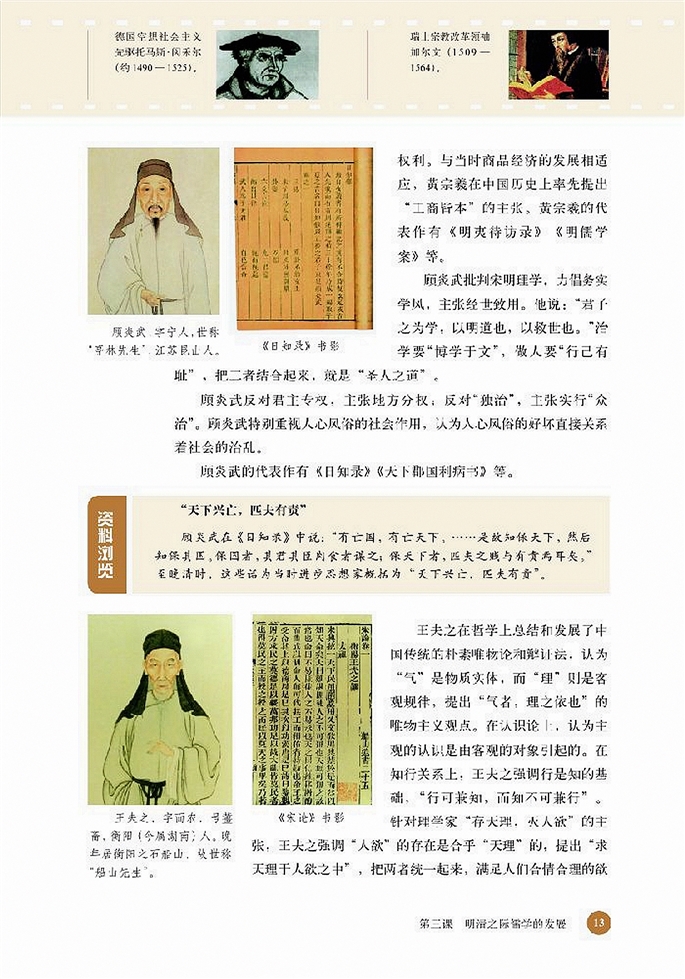 德国空想社会主义
先驱托马斯·闵采尔
(约1490—1525)。
瑞士宗教改革领袖
加尔文(1509—
1564)。
权利。与当时商品经济的发展相适
应，黄宗羲在中国历史上率先提出
“工商皆本”的主张。黄宗羲的代
表作有《明夷待访录》《明儒学
案》等。
顾炎武批判宋明理学，力倡务实
学风，主张经世致用。他说：“君子
之为学，以明道也，以救世也。”治
学要“博学于文”，做人要“行己有
耻”，把二者结合起来，就是“圣人之道”。
顾炎武，字宁人，世称
“亭林先生”，江苏昆山人。
《日知录》书影
顾炎武反对君主专权，主张地方分权；反对“独治”，主张实行“众
治”。顾炎武特别重视人心风俗的社会作用，认为人心风俗的好坏直接关系
着社会的治乱。
顾炎武的代表作有《日知录》《天下郡国利病书》等。
资料浏览
“天下兴亡，匹夫有责”
顾炎武在《日知录》中说：“有亡国，有亡天下。……是故知保天下，然后
知保其国。保国者，其君其臣肉食者谋之；保天下者，匹夫之贱与有责焉耳矣。”
至晚清时，这些话为当时进步思想家概括为“天下兴亡，匹夫有责”。
王夫之在哲学上总结和发展了中
国传统的朴素唯物论和辩证法，认为
“气”是物质实体，而“理”则是客
观规律，提出“气者，理之依也”的
唯物主义观点。在认识论上，认为主
观的认识是由客观的对象引起的。在
知行关系上，王夫之强调行是知的基
础，“行可兼知，而知不可兼行”。
针对理学家“存天理，灭人欲”的主
张，王夫之强调“人欲”的存在是合乎“天理”的，提出“求
天理于人欲之中”，把两者统一起来，满足人们合情合理的欲
王夫之，字而农，号薑
斋，衡阳(今属湖南)人。晚
年居衡阳之石船山，故世称
“船山先生”。
《宋论》书影
宋论卷一
衡阳王夫之譔
太祖
第三课 明清之际儒学的发展
13